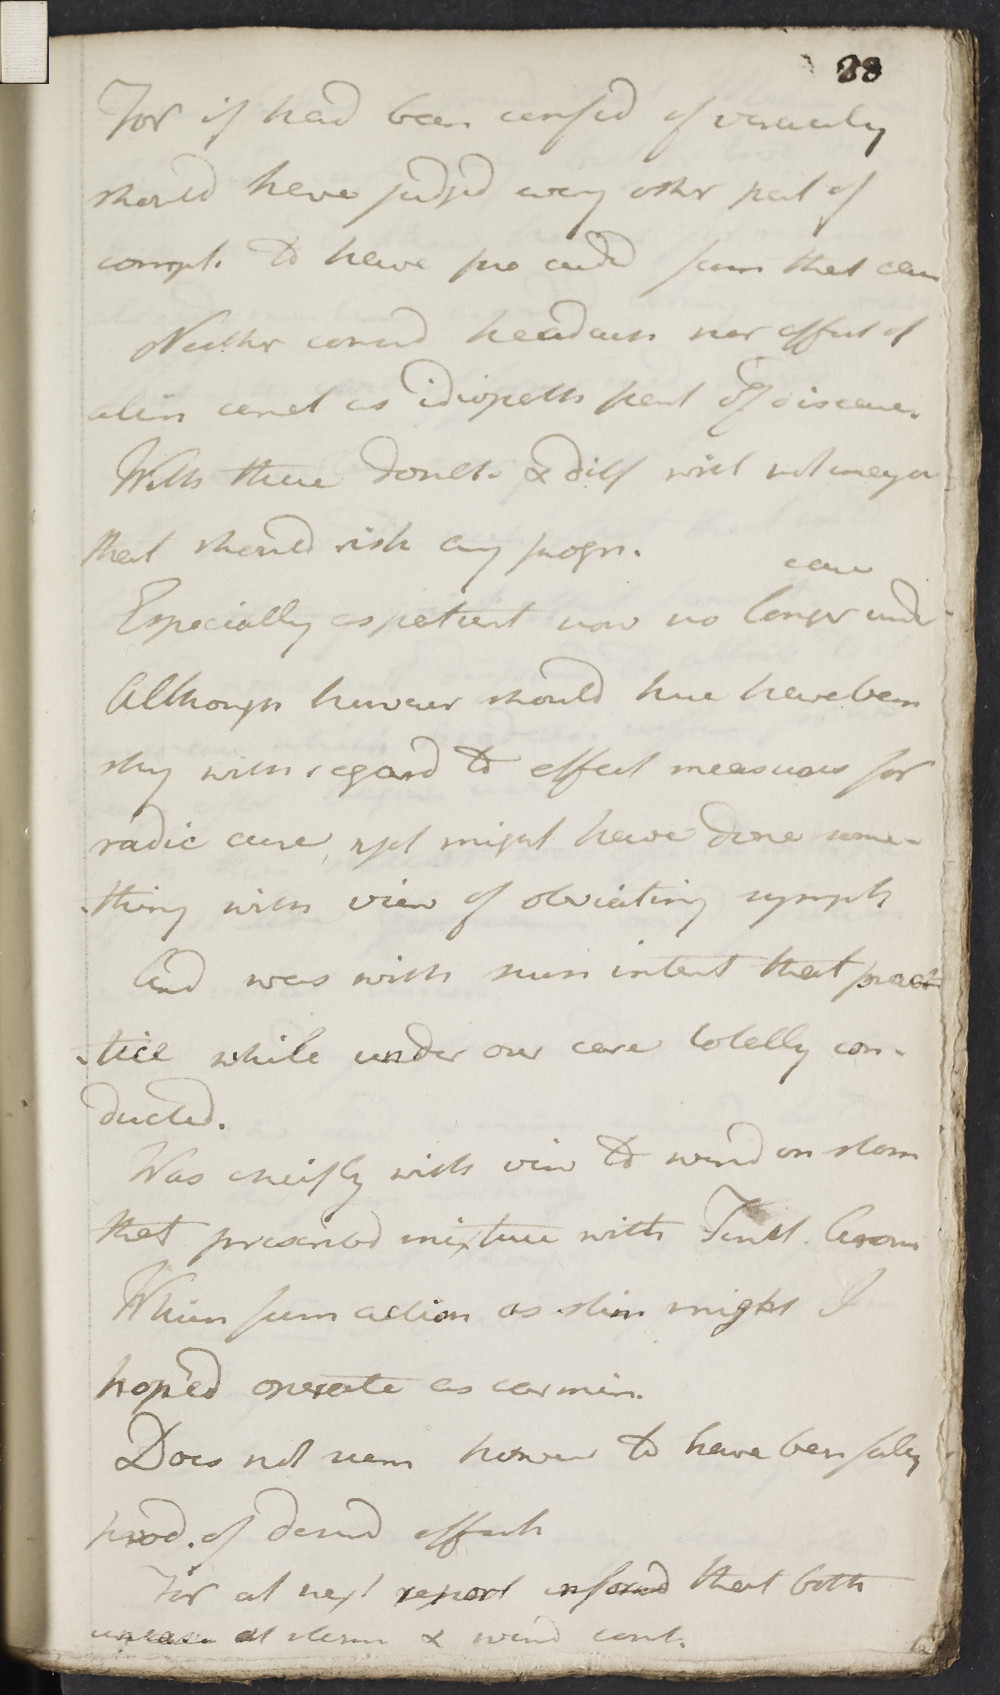 28
For if had been of veracity
should have judged every other part of
compt. to have from that
Neither could nor effect of
as idiopath part of disease.
With these doubts & diff will not
that should risk any progn.
care
Especially as patient now no longer under
Although however should have been
shy with regard to effect measures for
radic cure, yet might have done some-
-thing with view of obviating sympt
And was with intent that prac
-tice while under our care totally con-
ducted.
Was cheifly with view to wind on stom
that prescribed mixture with Tinct. Arom
from action as stim might I
hop'd operate as carmin.
Does not seem however to have been fully
prod. of desired effects
For at next report informd that both
uneasin at stom & wind cont.